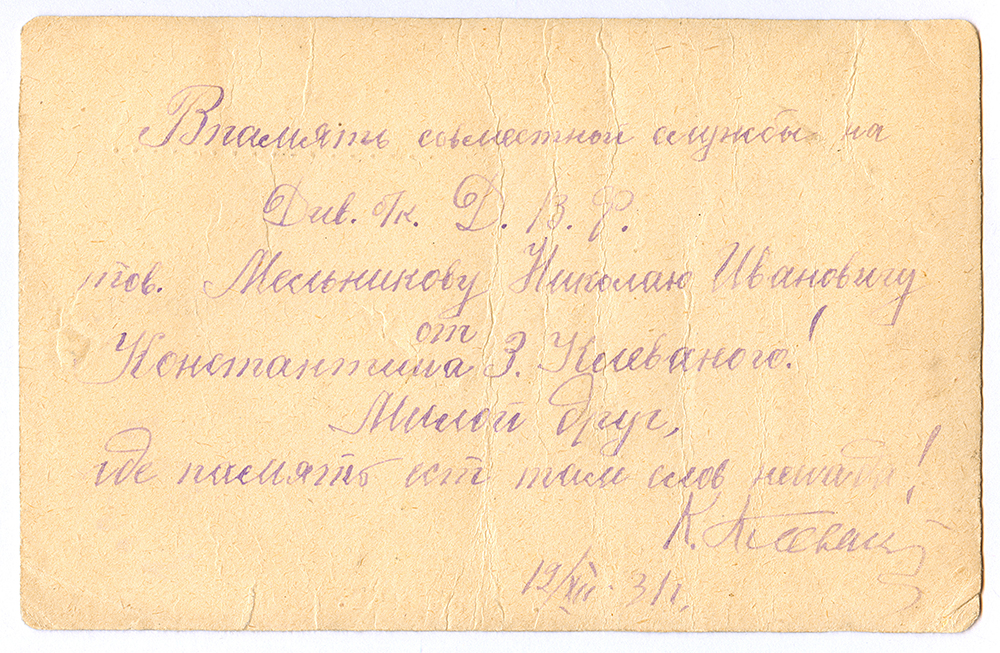 Впамять совместной службы на
Див. Гк. Д. В. Ф.
тов. Мельникову Николаю Ивановичу
от
Константина З. Клеваного!
Милой друг,
где память ест там слов ненада!
К. Клеван
12/XII-31г.